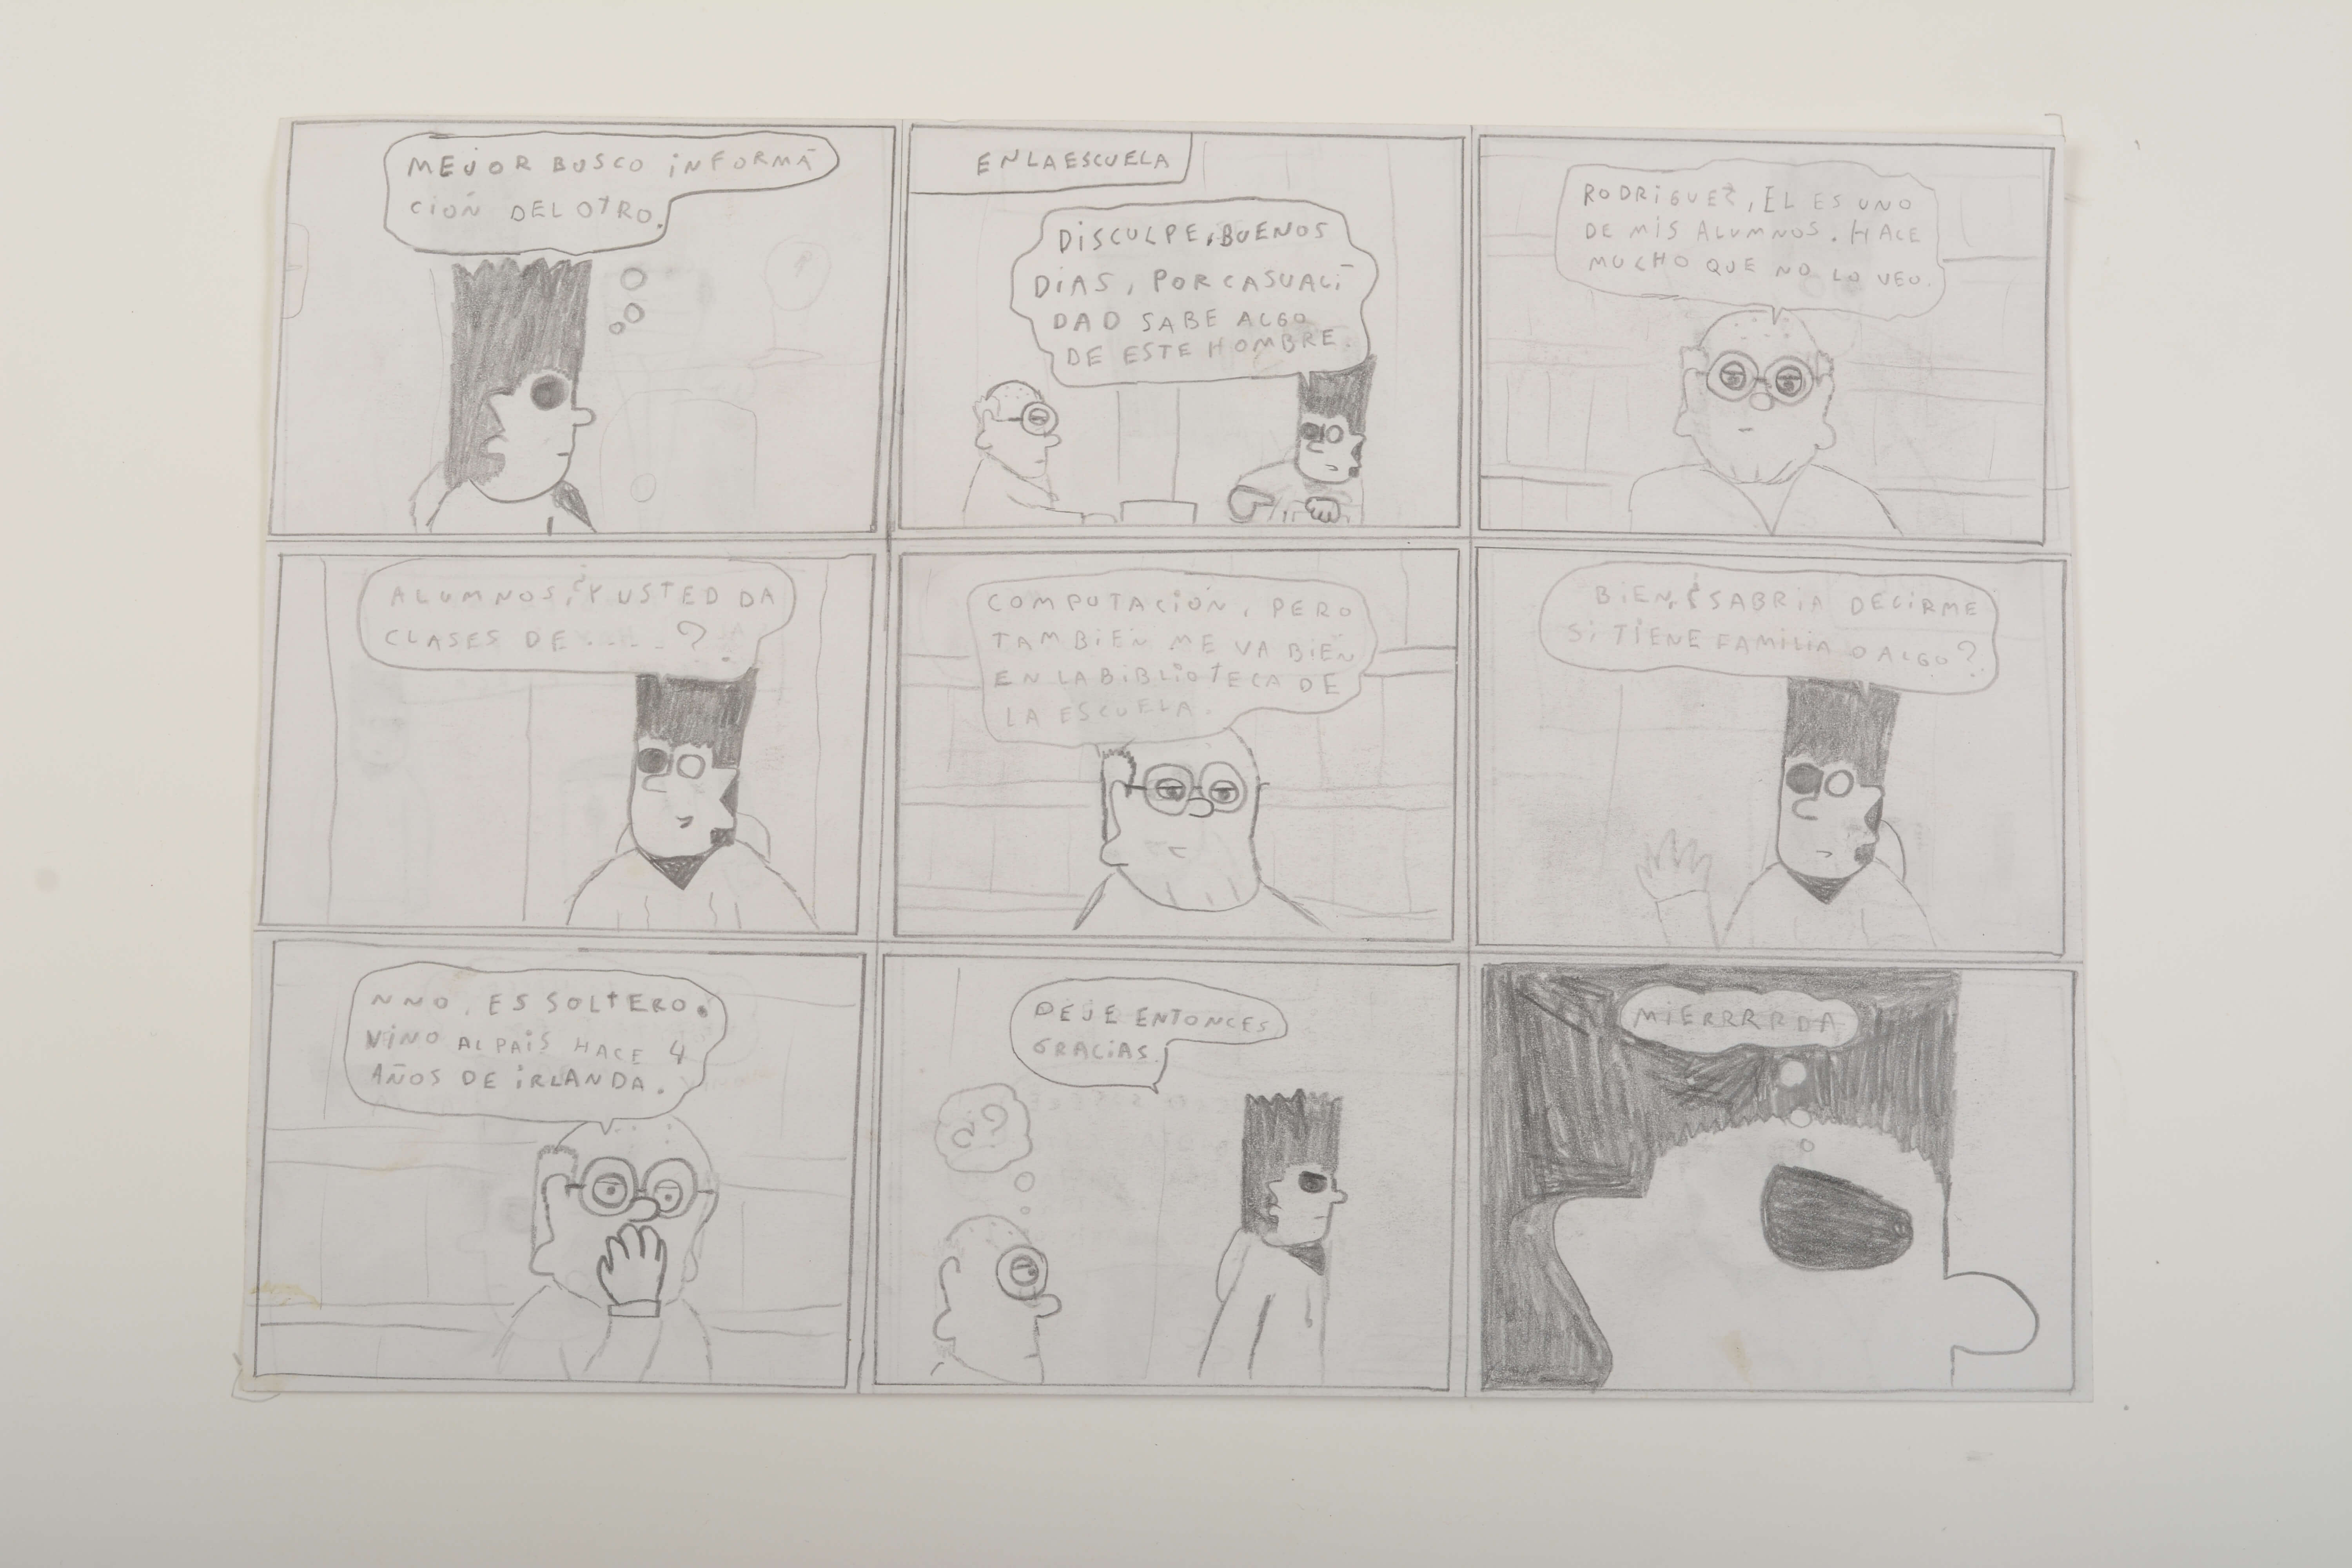 MEJOR BUSCO INFORMA-
CIÓN DEL OTRO.
EN LA ESCUELA
DISCULPE, BUENOS
DIAS, POR CASUALI-
DAD SABE ALGO
DE ESTE HOMBRE.
RODRIGUEZ, EL ES UNO
DE MIS ALUMNOS. HACE
MUCHO QUE NO LO VEO.
ALUMNOS, ¿Y USTED DA
CLASES DE ..... ?
COMPUTACIÓN, PERO
TAMBIÉN ME VA BIEN
EN LA BIBLIOTECA DE
LA ESCUELA.
BIEN, ¿SABRIA DECIRME
SI TIENE FAMILIA O ALGO?
NNO, ES SOLTERO.
VINO AL PAIS HACE 4
AÑOS DE IRLANDA.
DEJE ENTONCES
GRACIAS.
¿?
MIERRRRDA